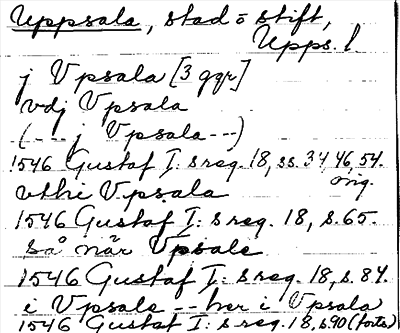 Uppsala, stad o stift,
Upps. l.
j Vpsala [3 ggr]
vdj Vpsala
(--- j Vpsala ---)
1546 Gustaf I: s reg. 18, ss. 34, 46, 54.
öng.
vthi Vpsala
1546 Gustaf I: s reg. 18, s. 65.
så när Vpsale
1546 Gustaf I: s reg. 18, s. 84.
i Vpsala -- her i Vpsala
1546 Gustaf I: s reg. 18, s 90 (forts)